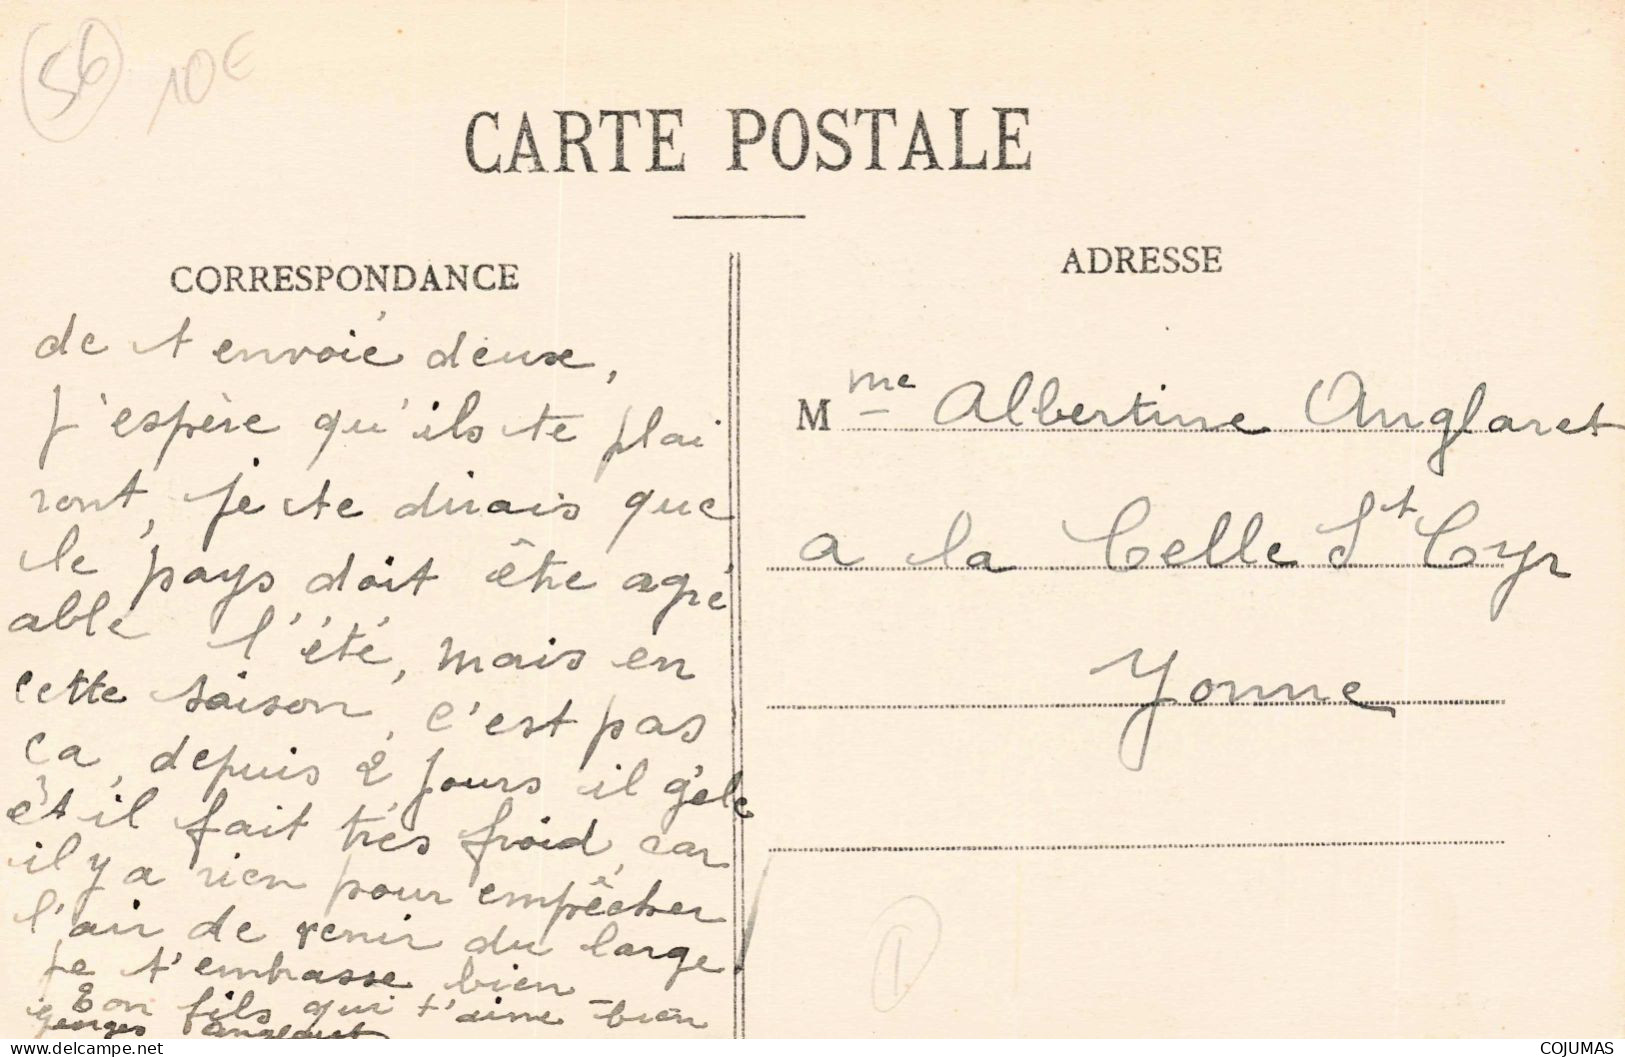 56
10€
CARTE POSTALE
CORRESPONDANCE
de t envoié deux,
j'espère qu'ils te plai
ront, je te dirais que
le pays doit être agré
able l'été, mais en
cette saison, c'est pas
ça, depuis 2 jours il gèle
et il fait très froid, car
il y a rien pour empêcher
l'air de venir du large
je t'embrasse bien
Ton fils qui t'aime bien
Georges Anglaret
ADRESSE
Mme Albertine Anglaret
a la Celle St Cyr
Yonne
1
COJUMAS